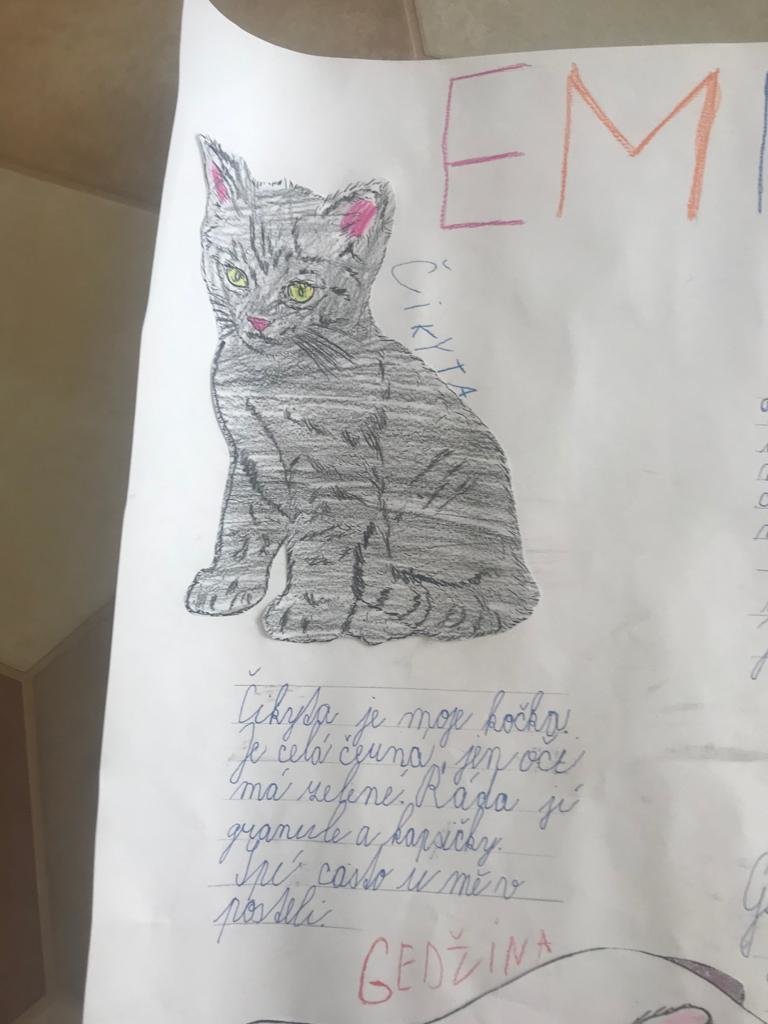 EM
ČIKYTA
Čikyta je moje kočka.
Je celá černá, jen oči
má zelené. Ráda jí
granule a kapsičky.
Spí casto u mě v
posteli.
GEDŽINA